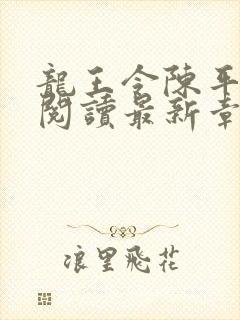 龍王令陳平
閱讀最新章
浪里飛花